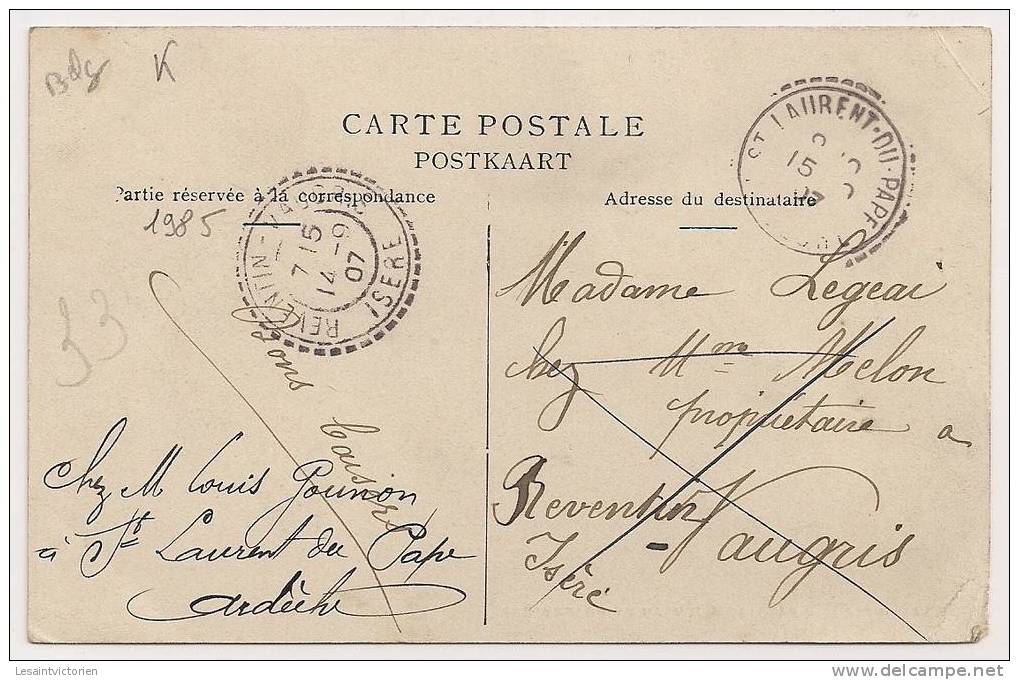 Bdg K
CARTE POSTALE
POSTKAART
Partie réservée à la correspondance
Adresse du destinataire
1985
33
REVENTIN-VAUGRIS
7 15
14-9
07
ISERE
ST LAURENT-DU-PAPE
15
Madame Legeai
chez Mme Melon
propriétaire a
Reventin
-Vaugris
Isère
Bons baisers
chez M Louis Gounon
à St Laurent du Pape
ardèche
Lesaintvictorien
http://www.delcampe.net